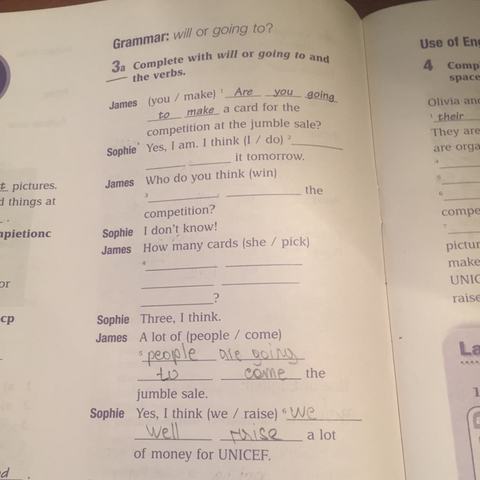 Grammar: will or going to?
3a Complete with will or going to and
the verbs.
James (you / make) ¹ Are you going
to make a card for the
competition at the jumble sale?
Sophie Yes, I am. I think (I / do) ²
it tomorrow.
James Who do you think (win)
³ the
competition?
Sophie I don't know!
James How many cards (she / pick)
⁴
?
Sophie Three, I think.
James A lot of (people / come)
⁵ people are going
to come the
jumble sale.
Sophie Yes, I think (we / raise) ⁶ we
well raise a lot
of money for UNICEF.
pictures.
d things at
apietionc
or
cp
d
Use of En
4 Comp
space
Olivia and
¹ their
They are
are orga
⁴
⁵
⁶
compe
⁷
pictur
make
UNIC
raise
La
1